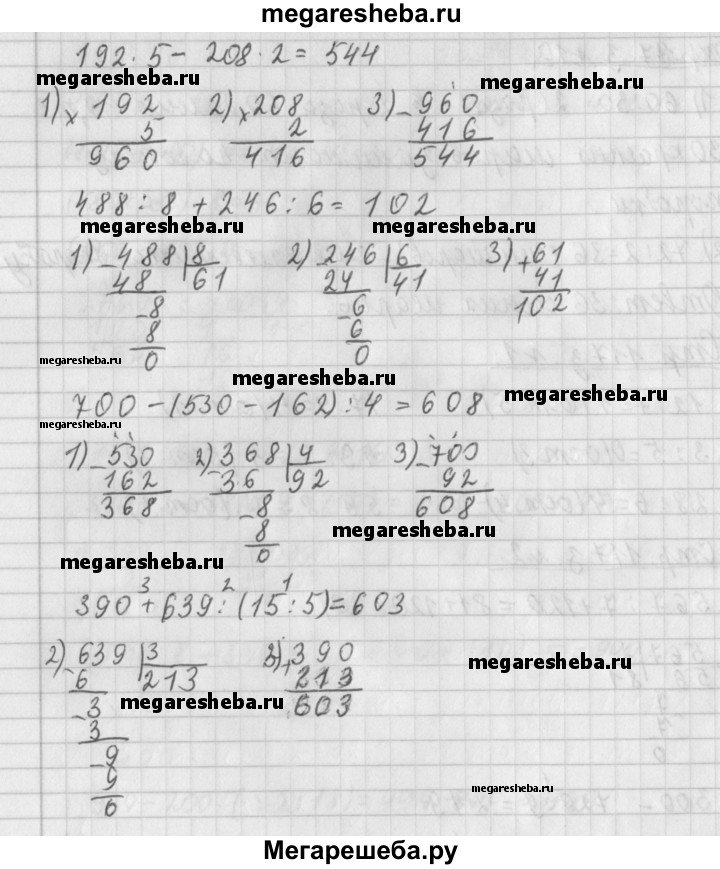 megaresheba.ru
192 · 5 - 208 · 2 = 544
megaresheba.ru megaresheba.ru
1) × 192 2) × 208 3) - 960
5 2 416
960 416 544
488 : 8 + 246 : 6 = 102
megaresheba.ru megaresheba.ru
1) - 488 | 8 2) - 246 | 6 3) + 61
48 61 24 41 41
- 8 - 6 102
8 6
0 0
megaresheba.ru
megaresheba.ru megaresheba.ru
700 - (530 - 162) : 4 = 608
megaresheba.ru
1) - 530 2) - 368 | 4 3) - 700
162 36 92 92
368 - 8 608
8
0
megaresheba.ru
megaresheba.ru
3 2 1
390 + 639 : (15 : 5) = 603
2) - 639 | 3 3) + 390
6 213 213
- 3 603
3
- 9
9
0
megaresheba.ru
megaresheba.ru
megaresheba.ru
Мегарешеба.ру